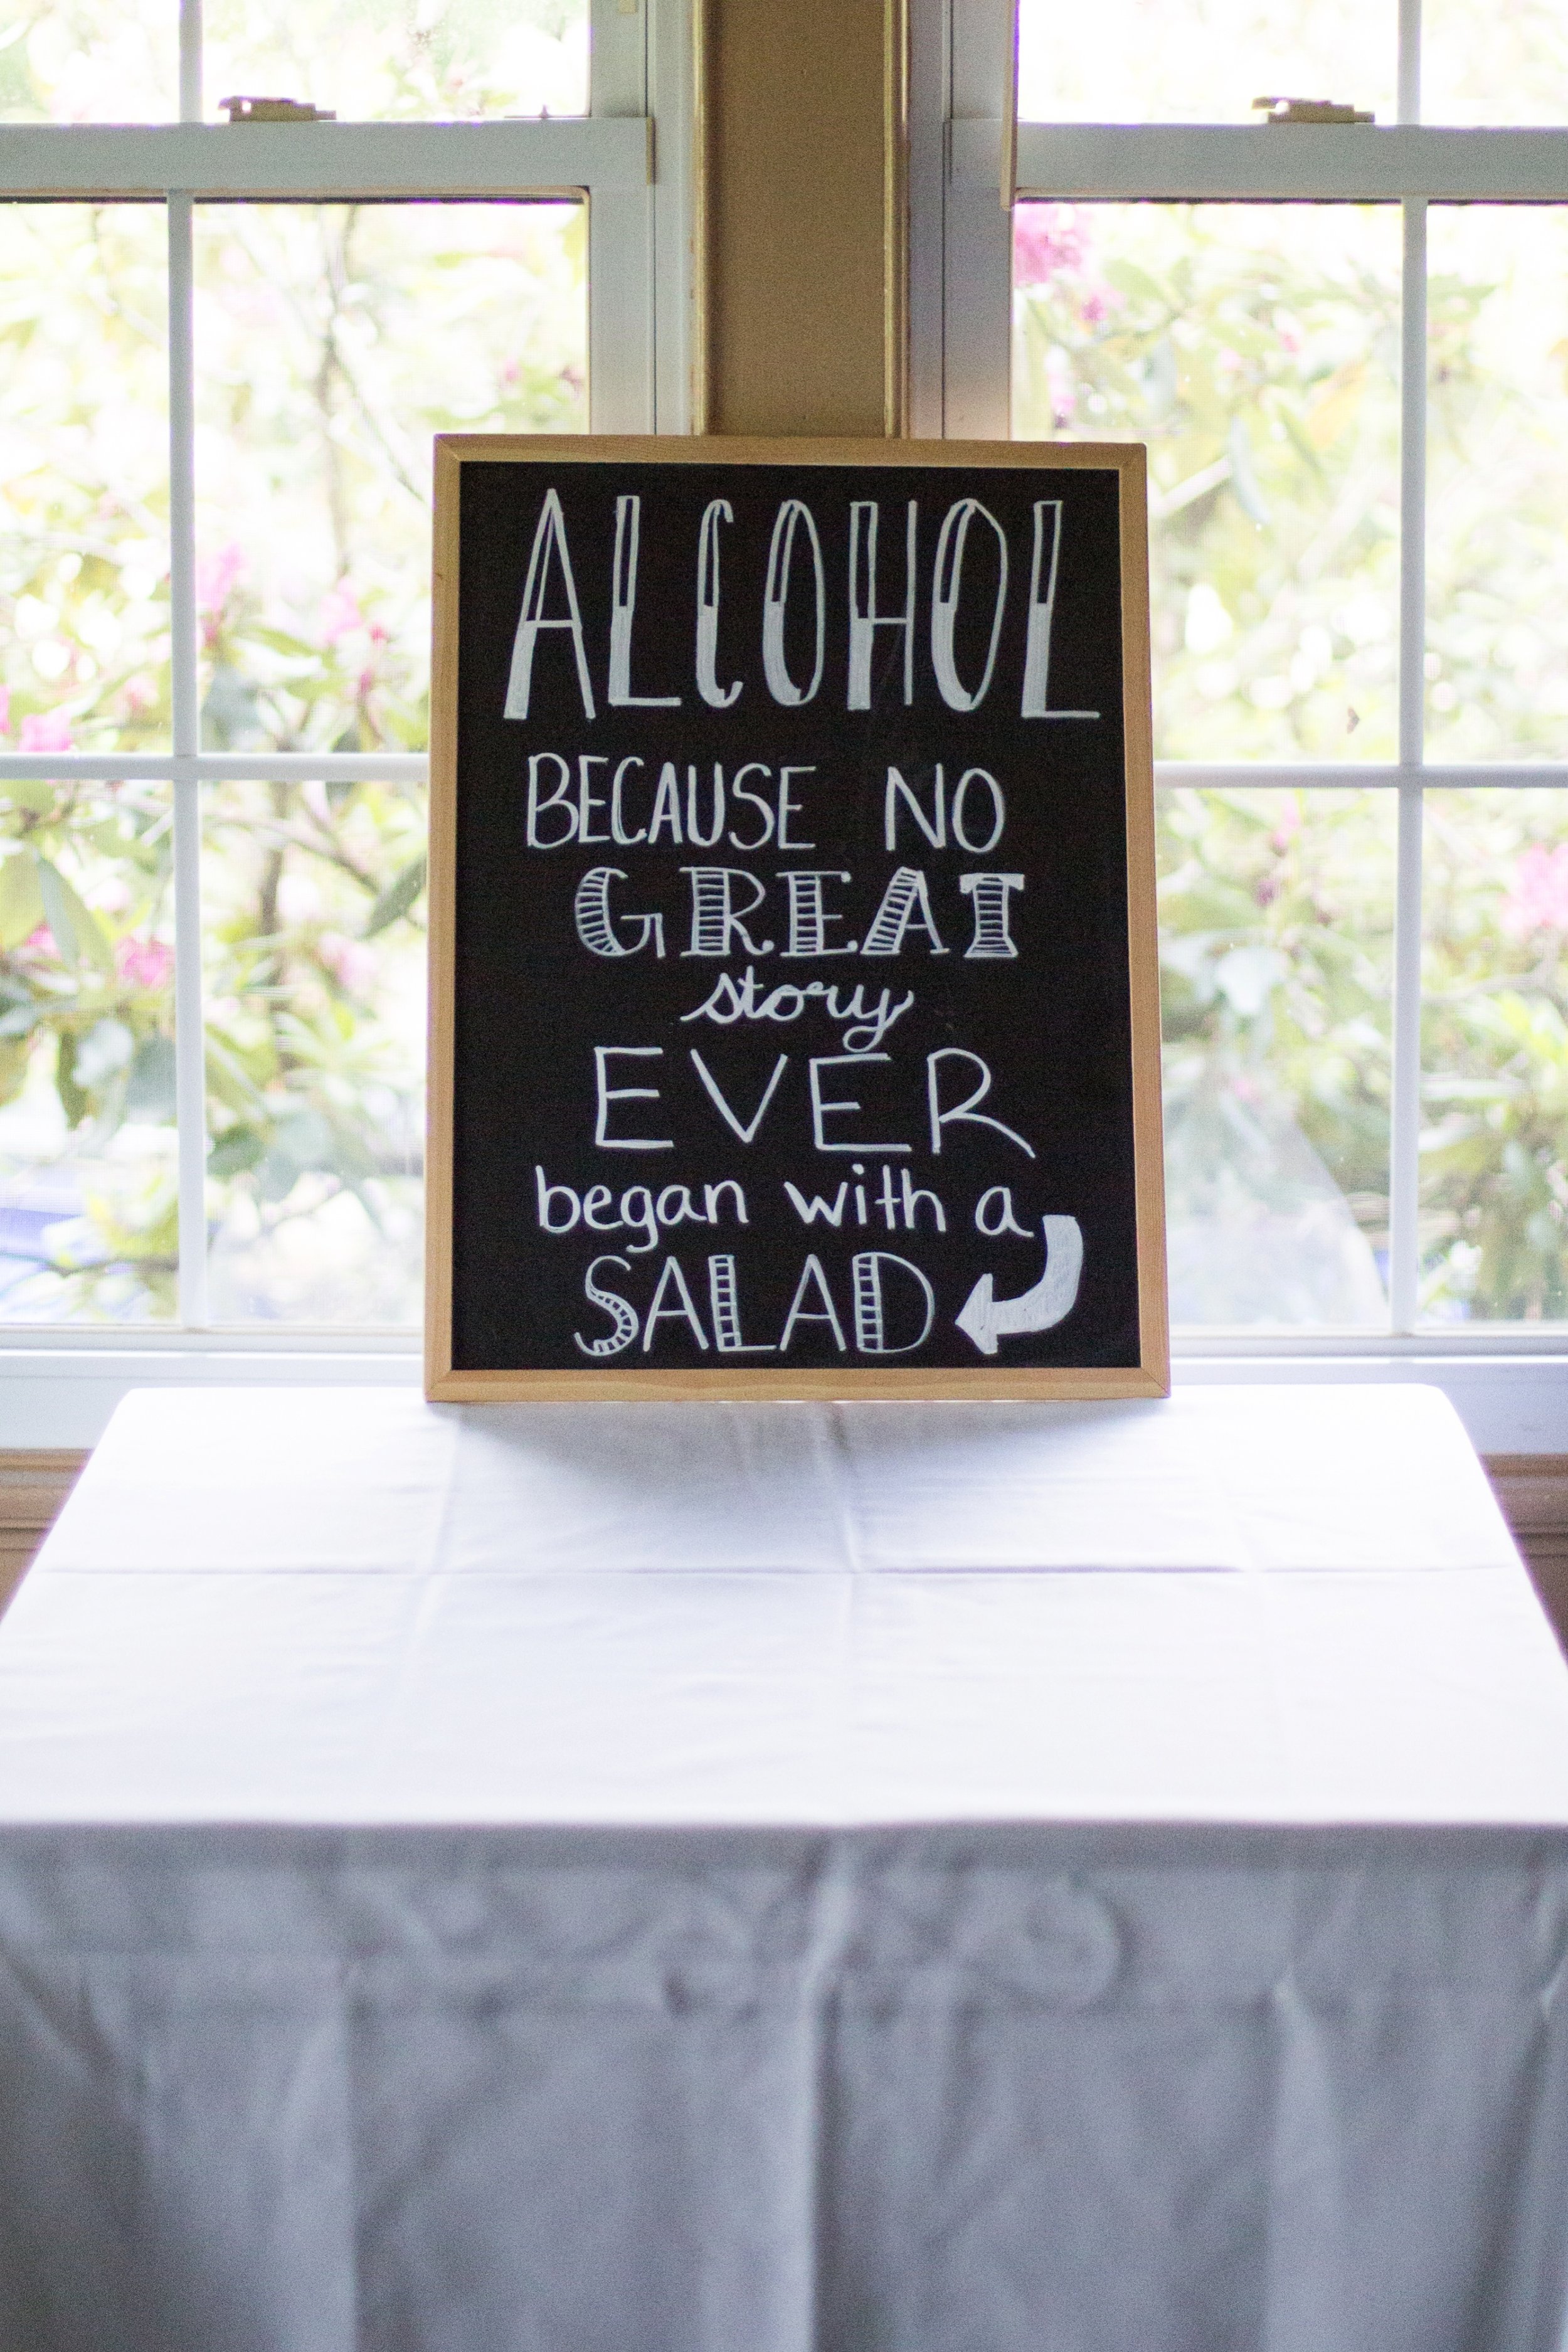 ALCOHOL
BECAUSE NO
GREAT
story
EVER
began with a
SALAD